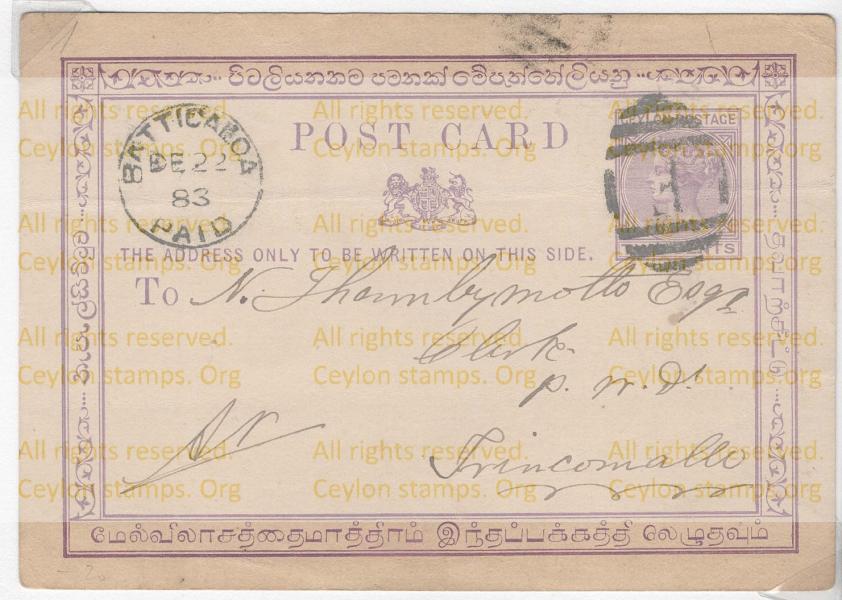 පිටලියනනම පමනක් මේපැත්තේලියනු
CEYLON POSTAGE
POST CARD
BATTICALOA
DE 22
83
PAID
THE ADDRESS ONLY TO BE WRITTEN ON THIS SIDE.
To N. Thambymotto Esqr
Clerk
P. W. D.
Trincomalle
தபாற்சீட்டு
மேல்விலாசத்தைமாத்திரம் இந்தப்பக்கத்தி லெழுதவும்
All rights reserved.
Ceylon stamps. Org
All rights reserved.
Ceylon stamps. Org
All rights reserved.
Ceylon stamps. Org
All rights reserved.
Ceylon stamps. Org
All rights reserved.
Ceylon stamps. Org
All rights reserved.
Ceylon stamps. Org
All rights reserved.
Ceylon stamps. Org
All rights reserved.
Ceylon stamps. Org
All rights reserved.
Ceylon stamps. Org
All rights reserved.
Ceylon stamps. Org
All rights reserved.
Ceylon stamps. Org
All rights reserved.
Ceylon stamps. Org